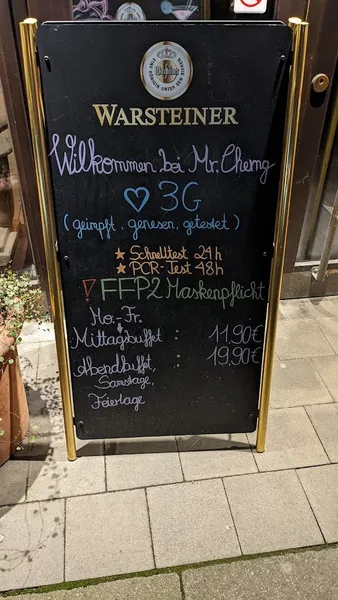 WARSTEINER
Willkommen bei Mr. Cheng
3G
(geimpft, genesen, getestet)
Schnelltest 24h
PCR-Test 48h
! FFP2 Maskenpflicht
Mo.-Fr.
Mittagsbuffet : 11,90€
Abendbuffet, : 19,90€
Samstage,
Feiertage